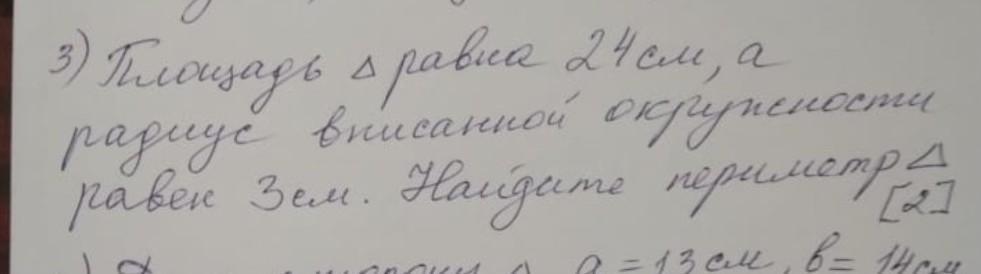 3) Площадь △ равна 24 см, а
радиус вписанной окружности
равен 3 см. Найдите периметр △
[2]
a = 13 см, в = 14 см